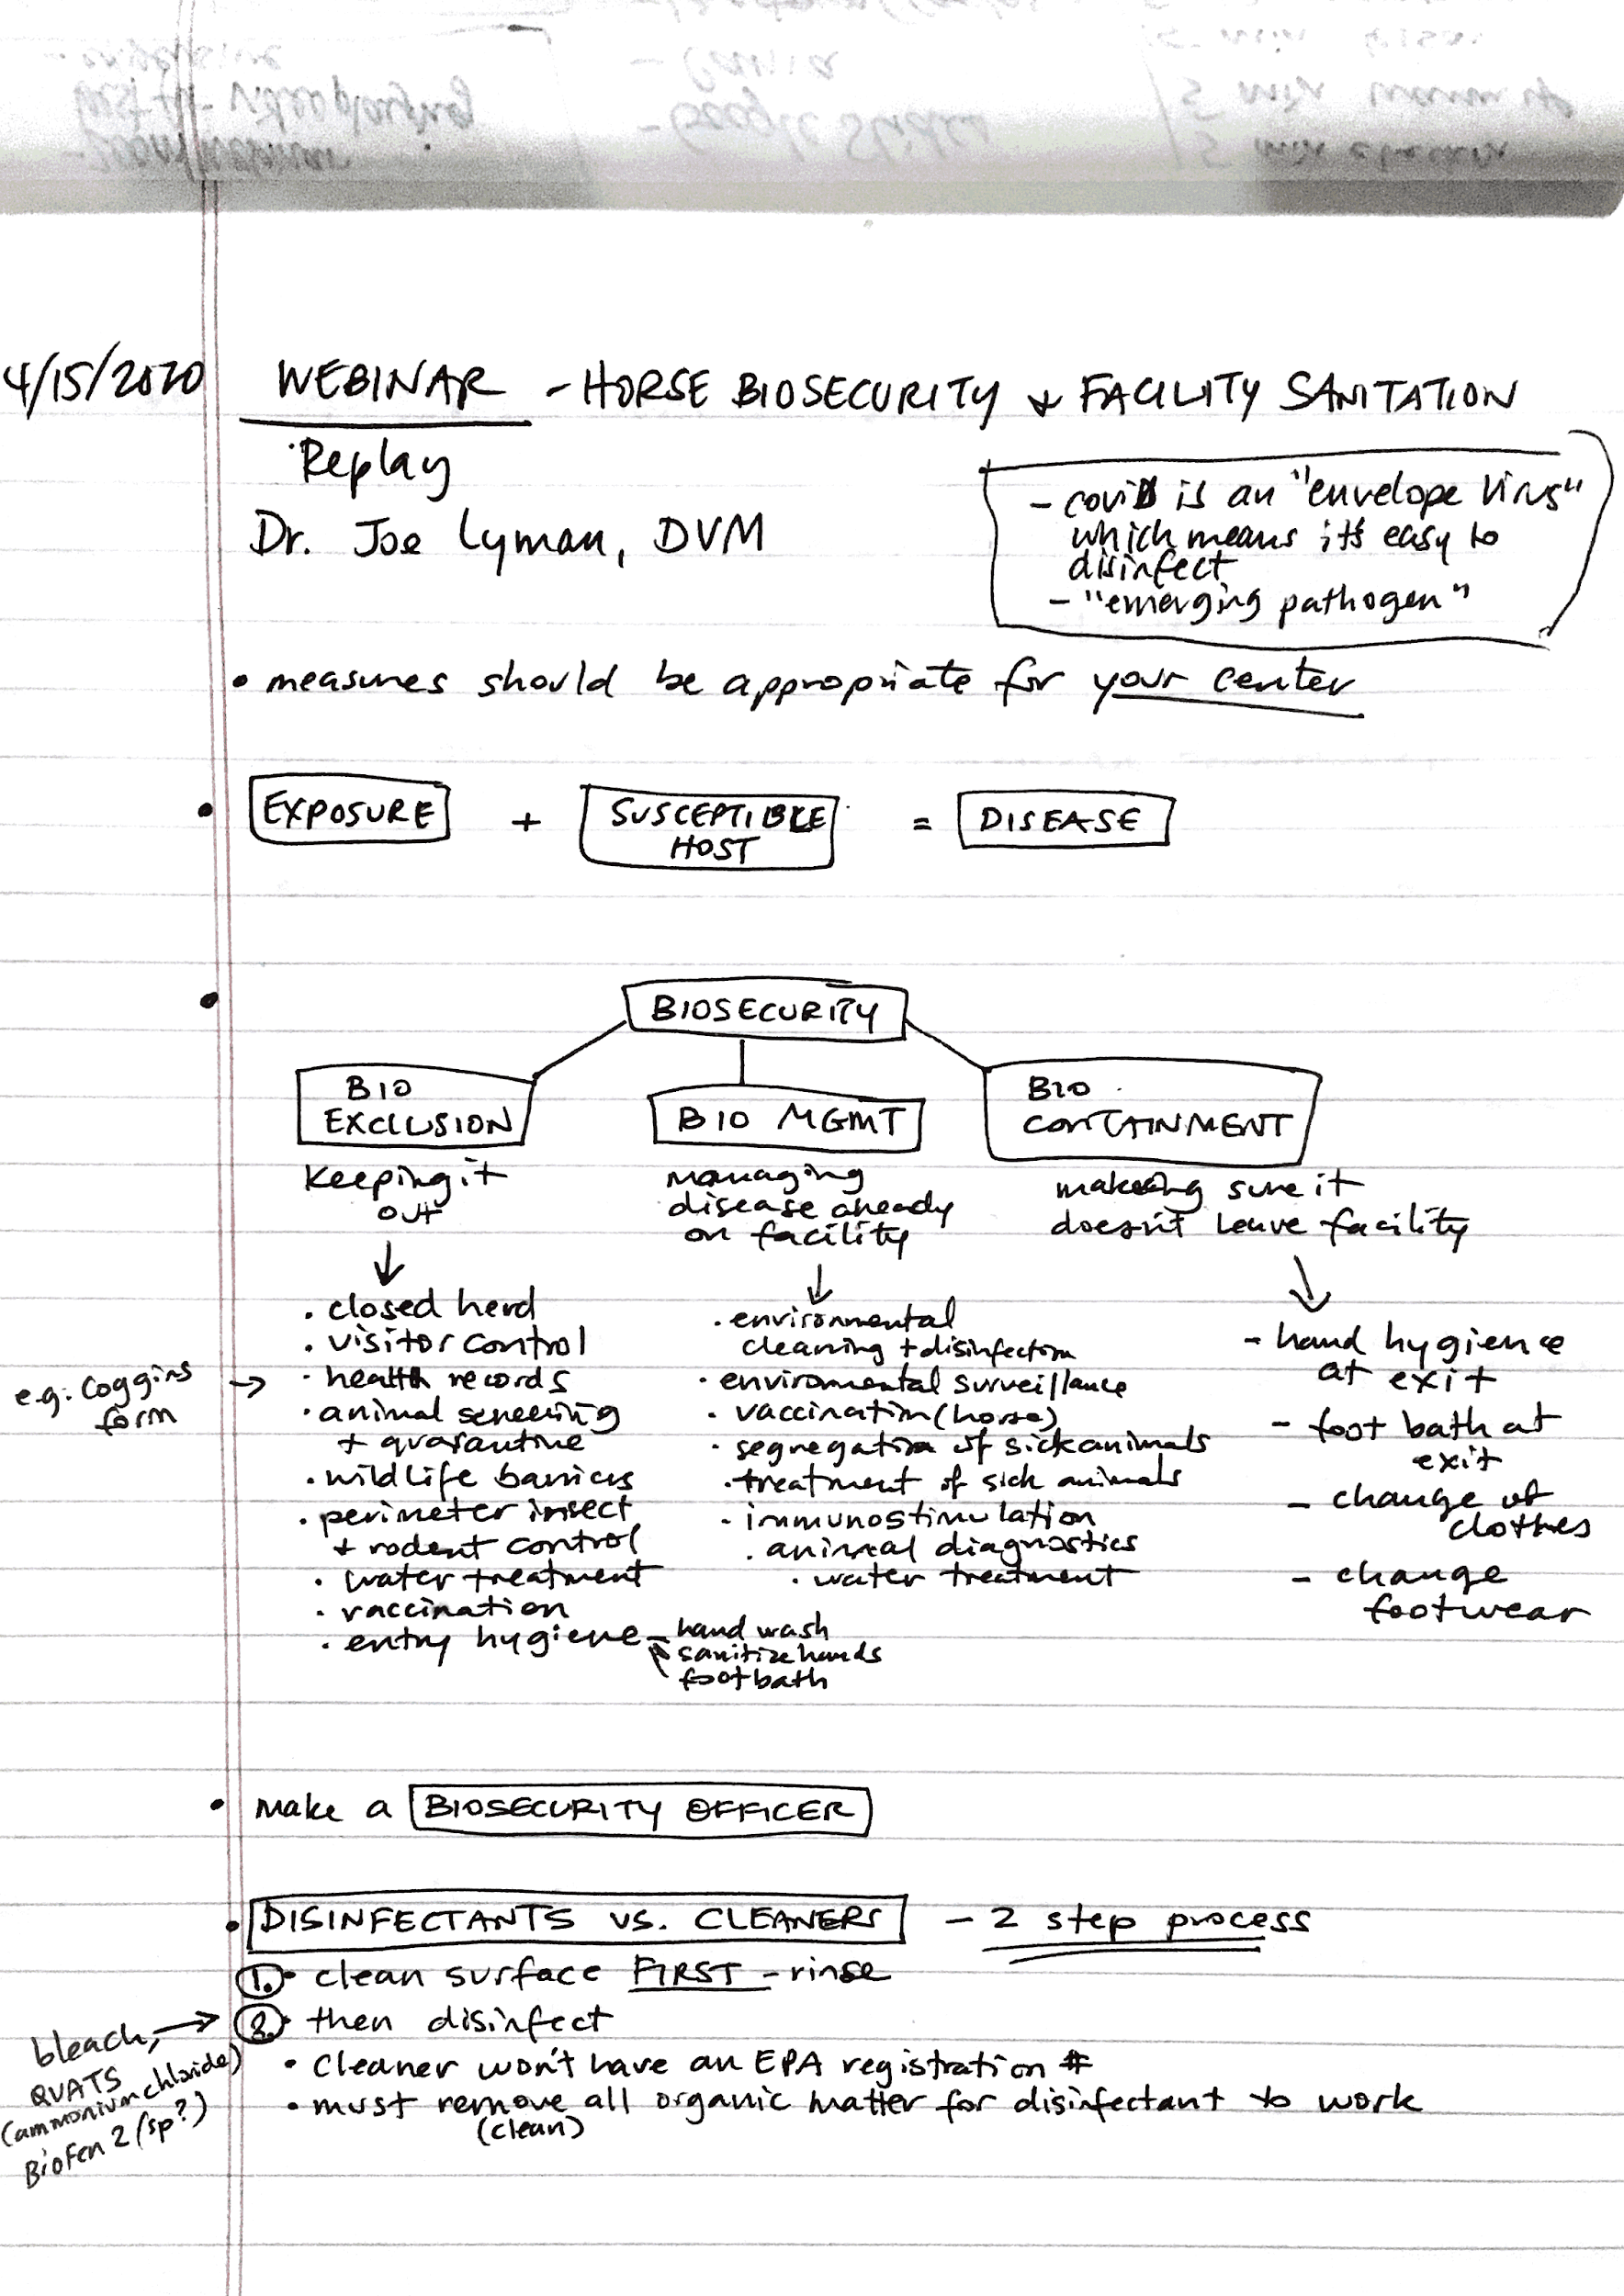 4/15/2020 WEBINAR - HORSE BIOSECURITY & FACILITY SANITATION
Replay
Dr. Joe Lyman, DVM
- covid is an "envelope virus"
which means it's easy to
disinfect
- "emerging pathogen"
• measures should be appropriate for your center
• EXPOSURE + SUSCEPTIBLE HOST = DISEASE
• BIOSECURITY
BIO
EXCLUSION
keeping it
out
• closed herd
• visitor control
e.g: Coggins
form
→ • health records
• animal screening
+ quarantine
• wildlife barriers
• perimeter insect
+ rodent control
• water treatment
• vaccination
• entry hygiene - hand wash
sanitize hands
footbath
BIO MGMT
managing
disease already
on facility
• environmental
cleaning + disinfection
• enviromental surveillance
• vaccination (horse)
• segregation of sick animals
• treatment of sick animals
• immunostimulation
• animal diagnostics
• water treatment
BIO
CONTAINMENT
making sure it
doesn't leave facility
- hand hygience
at exit
- foot bath at
exit
- change of
clothes
- change
footwear
• make a BIOSECURITY OFFICER
• DISINFECTANTS VS. CLEANERS - 2 step process
1. • clean surface FIRST - rinse
2. • then disinfect
bleach, →
QUATS
(ammonium chloride)
BioFen 2 (sp?)
• Cleaner won't have an EPA registration #
• must remove all organic matter for disinfectant to work
(clean)